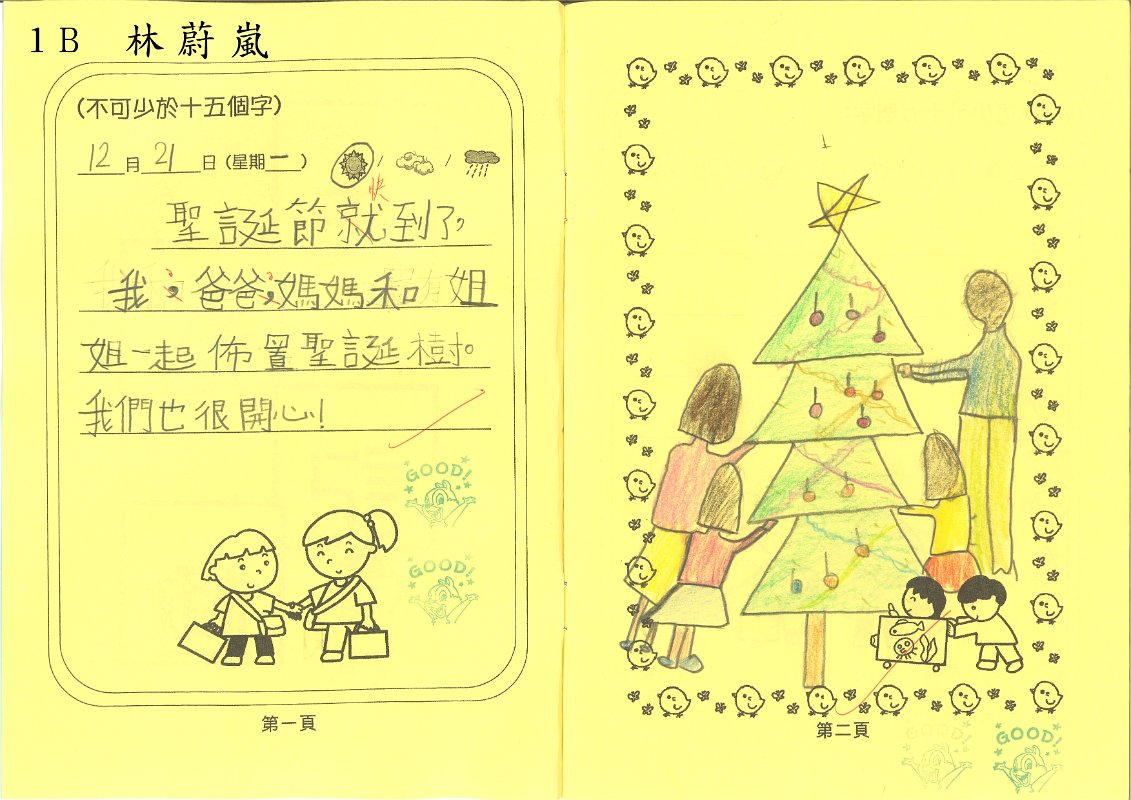 1B 林蔚嵐
(不可少於十五個字)
12月21日(星期一) / /
快
聖誕節就到了,
我,爸爸,媽媽和姐
姐一起佈置聖誕樹。
我們也很開心!
GOOD!
GOOD!
第一頁
第二頁
GOOD!
GOOD!